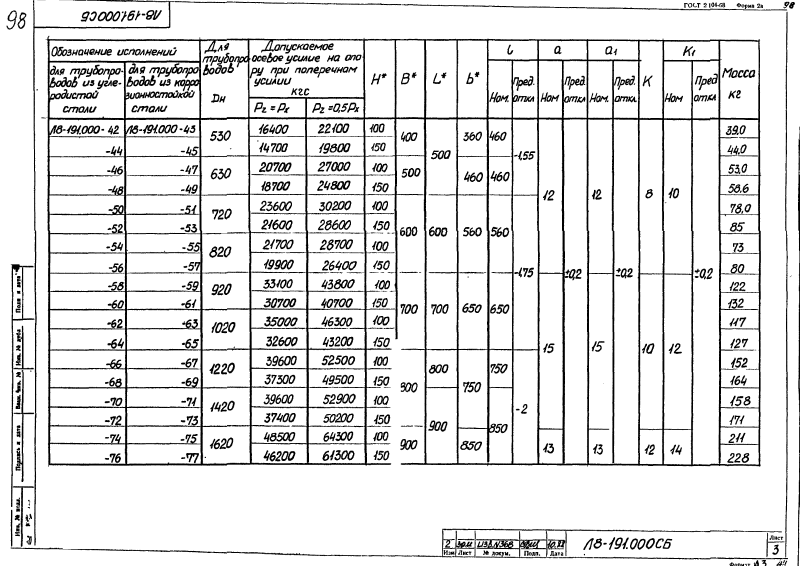 98
Л8-191000СБ
ГОСТ 2.104-68 Форма 2а
98
Обозначение исполнений
для трубопроводов из углеродистой стали
для трубопроводов из коррозионностойкой стали
Для трубопроводов Dн
Допускаемое осевое усилие на опору при поперечном усилии кгс
Pz = Px
Pz =0,5Px
H*
B*
L*
b*
l
Ном.
Пред. откл
a
Ном
Пред. откл
a1
Ном.
Пред. откл
K
K1
Ном
Пред. откл
Масса кг
Л8-191.000-42 Л8-191.000-43 530 16400 22100 100 400 500 360 460 -1,55 12 12 8 10 39,0
-44 -45 14700 19800 150 44,0
-46 -47 630 20700 27000 100 500 460 460 53,0
-48 -49 18700 24800 150 58.6
-50 -51 720 23600 30200 100 600 600 560 560 78,0
-52 -53 21600 28600 150 85
-54 -55 820 21700 28700 100 73
-56 -57 19900 26400 150 -1,75 ±0,2 ±0,2 ±0,2 80
-58 -59 920 33100 43800 100 700 700 650 650 122
-60 -61 30700 40700 150 132
-62 -63 1020 35000 46300 100 117
-64 -65 32600 43200 150 15 15 10 12 127
-66 -67 1220 39600 52500 100 800 800 750 750 152
-68 -69 37300 49500 150 164
-70 -71 1420 39600 52900 100 900 850 -2 158
-72 -73 37400 50200 150 171
-74 -75 1620 48500 64300 100 900 850 13 13 12 14 211
-76 -77 46200 61300 150 228
Подп и дата
Инв. № дубл.
Взам. инв. №
Подпись и дата
Инв. № подл.
2 зам
Изм Лист № докум. Подп. Дата
Л8-191.000СБ
Лист
3
Формат А3